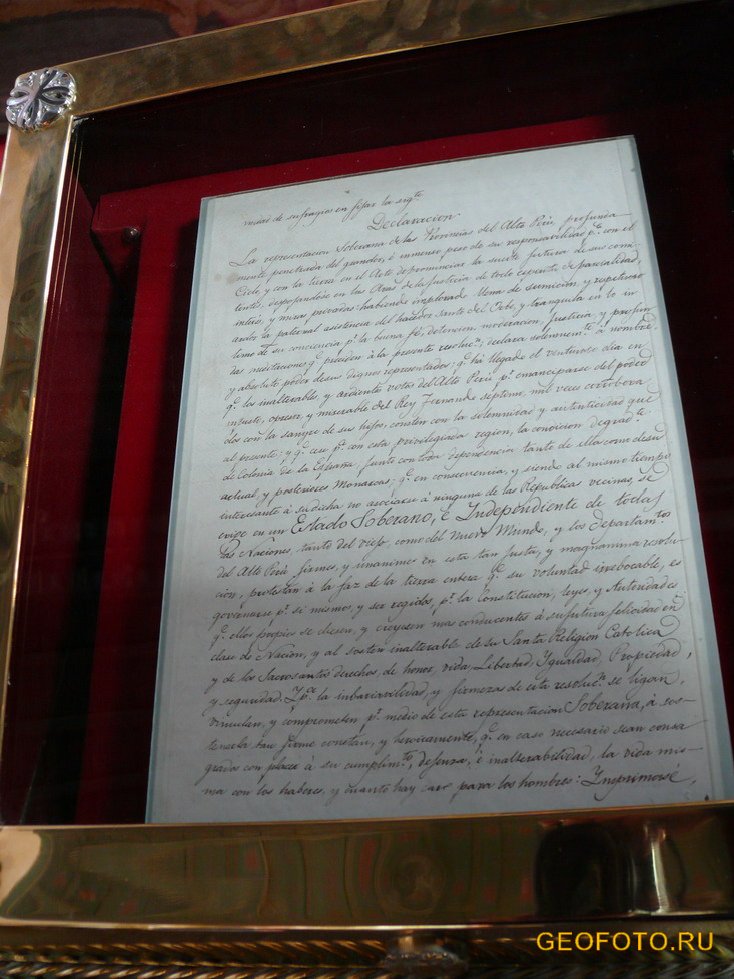 midad de sufragios en fijar la sigte
Declaracion
La representacion Soberana de las Provincias del Alto Perú, profunda-
mente penetrada del grandor, é inmenso peso de su responsabilidad pa. con el
Cielo, y con la tierra en el Acto de pronunciar la suerte futura de sus comi-
tentes, despojandose en las Aras de la justicia de todo espiritu de parcialidad,
interés, y miras privadas: habiendo implorado llena de sumicion, y respetuoso
ardor la paternal asistencia del hacedor Santo del Orbe, y tranquila en lo in-
timo de su conciencia pr. la buena fé, detencion, moderacion, justicia, y profun-
das meditaciones qe. presiden á la presente resolucn., declara solemnemte. á nombre
y absoluto poder de sus dignos representados: qe. há llegado el venturoso dia en
qe. los inalterables, y ardientes votos del Alto Perú pr. emanciparse del poder
injusto, opresor, y miserable del Rey Fernando septimo, mil veces corrobora-
dos con la sangre de sus hijos, consten con la solemnidad y autenticidad que
al presente: y qe. cese pa. con esta privilegiada region, la condicion degradte.
de Colonia de la España, junto con toda dependencia tanto de ella como de su
actual, y posteriores Monarcas: qe. en consecuencia, y siendo al mismo tiempo
interesante á su dicha no asociarse á ninguna de las Republicas vecinas, se
erige en un Estado Soberano, é Independiente de todas
las Naciones, tanto del viejo, como del nuevo Mundo, y los Departamtos
del Alto Perú firmes, y unanimes en esta tan justa, y magnanima resolu-
cion, protestan á la faz de la tierra entera qe. su voluntad irrebocable, es
governarse pr. si mismos, y ser regidos, pr. la Constitucion, leyes, y Autoridades
qe. ellos propios se diesen, y creyesen mas conducentes á su futura felicidad en
clase de Nacion, y al sosten inalterable de su Santa Religion Catolica
y de los Sacrosantos derechos, de honor, vida, Libertad, Ygualdad, Propiedad,
y seguridad. Ypa. la inbariabilidad, y firmeza de esta resolucn. se ligan,
vinculan, y comprometen pr. medio de esta representacion Soberana, á sos-
tenerla tan firme, constan, y heroicamente, qe. en caso necesario sean consa-
grada con placer á su cumplimto, defensa, é inalterabilidad, la vida mis-
ma con los haberes, y cuanto hay caro para los hombres: Ynprimasé,
GEOFOTO.RU